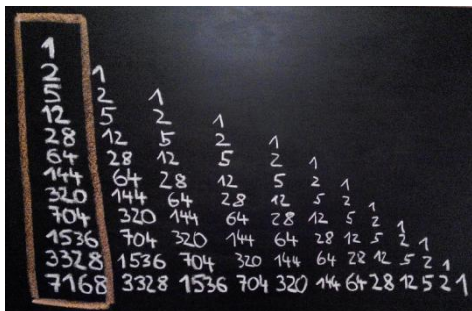 1
2 1
5 2 1
12 5 2 1
28 12 5 2 1
64 28 12 5 2 1
144 64 28 12 5 2 1
320 144 64 28 12 5 2 1
704 320 144 64 28 12 5 2 1
1536 704 320 144 64 28 12 5 2 1
3328 1536 704 320 144 64 28 12 5 2 1
7168 3328 1536 704 320 144 64 28 12 5 2 1